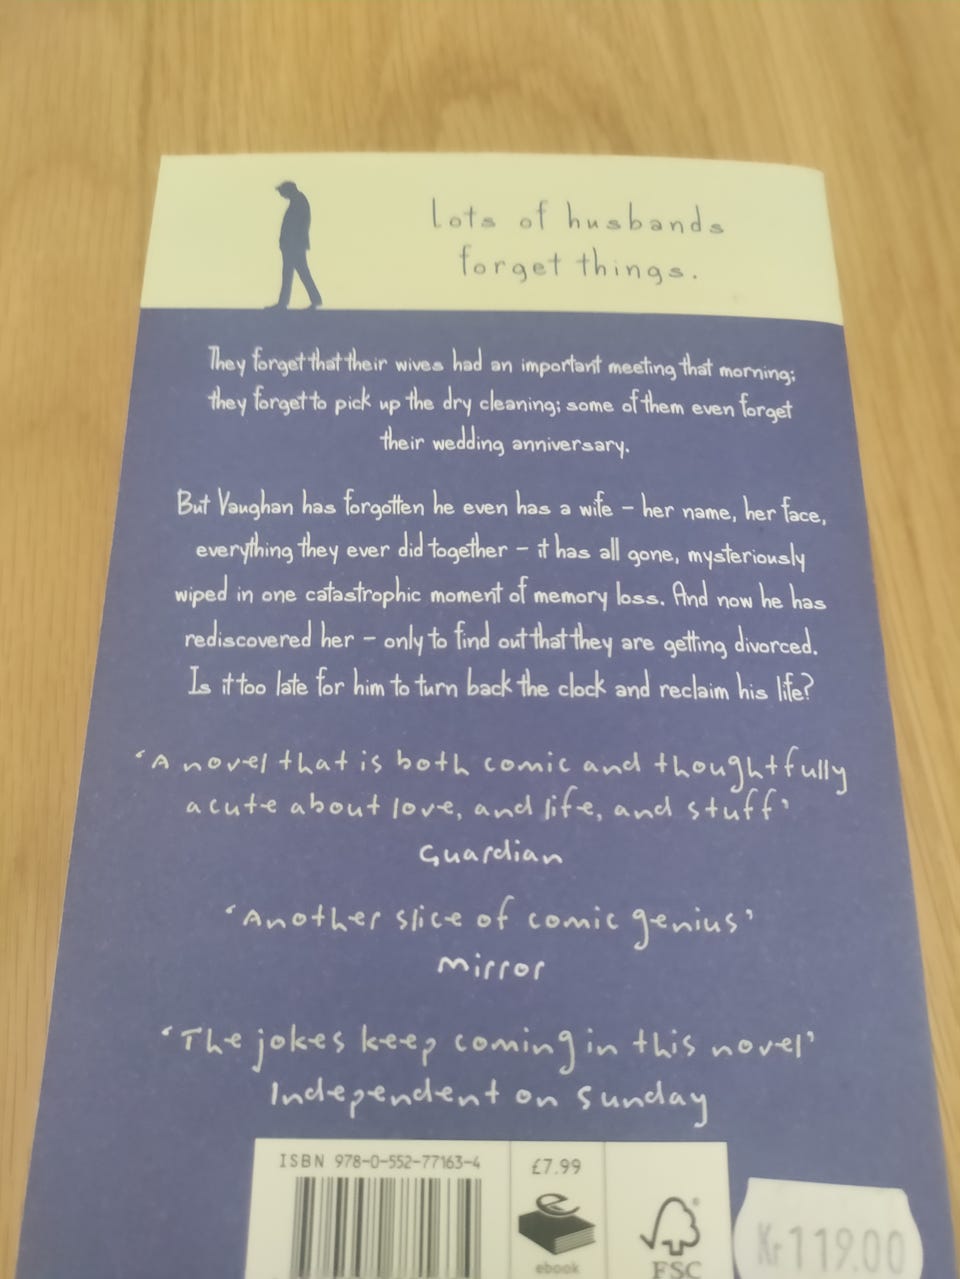 lots of husbands
forget things.
They forget that their wives had an important meeting that morning;
they forget to pick up the dry cleaning; some of them even forget
their wedding anniversary.
But Vaughan has forgotten he even has a wife – her name, her face,
everything they ever did together – it has all gone, mysteriously
wiped in one catastrophic moment of memory loss. And now he has
rediscovered her – only to find out that they are getting divorced.
Is it too late for him to turn back the clock and reclaim his life?
‘A novel that is both comic and thoughtfully
acute about love, and life, and stuff’
Guardian
‘Another slice of comic genius’
Mirror
‘The jokes keep coming in this novel’
Independent on Sunday
ISBN 978-0-552-77163-4
£7.99
ebook
FSC
Kr 119.00